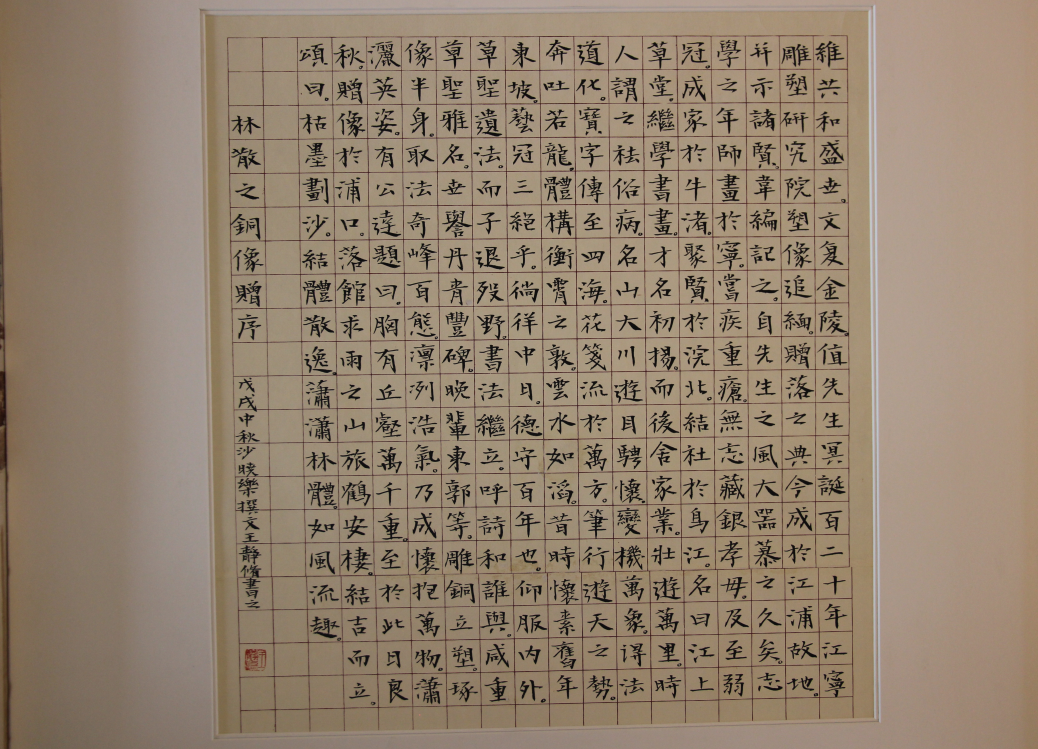 維共和盛世。文复金陵。值先生冥誕百二十年江寧
雕塑研究院塑像追緬。贈落之典今成於江浦故地。
并示諸賢。韋編記之。自先生之風大器慕之久矣。志
學之年師畫於寧。嘗疾重瘡。無志藏銀孝毋。及至弱
冠。成家於牛渚。聚賢於浣北。結社於烏江。名曰江上
草堂。繼學書畫。才名初揚。而後舍家業。壯遊萬里。時
人謂之祛俗病。名山大川遊目騁懷。變機萬象。得法
道化。寶字傳至四海。花箋流於萬方。筆行遊天之勢。
奔吐若龍。體構衡霄之敦。雲水如滔。昔時懷素舊年
東坡。藝冠三絕乎。徜徉中日。德守百年也。仰服內外。
草聖遺法。而子退殁野。書法繼立。呼詩和誰與。咸重
草聖雅名。世譽丹青豐碑。晚輩東郭等。雕銅立塑。琢
像半身。取法奇峰百態。凛冽浩氣。乃成懷抱萬物。瀟
灑英姿。有公達題曰。胸有丘壑萬千重。至於此日良
秋。贈像於浦口。落館求雨之山旅鶴安棲。結吉而立。
頌曰。枯墨劃沙。結體散逸。瀟瀟林體。如風流趣。
林散之銅像贈序
戊戌中秋沙晱樂撰文王靜脩書之